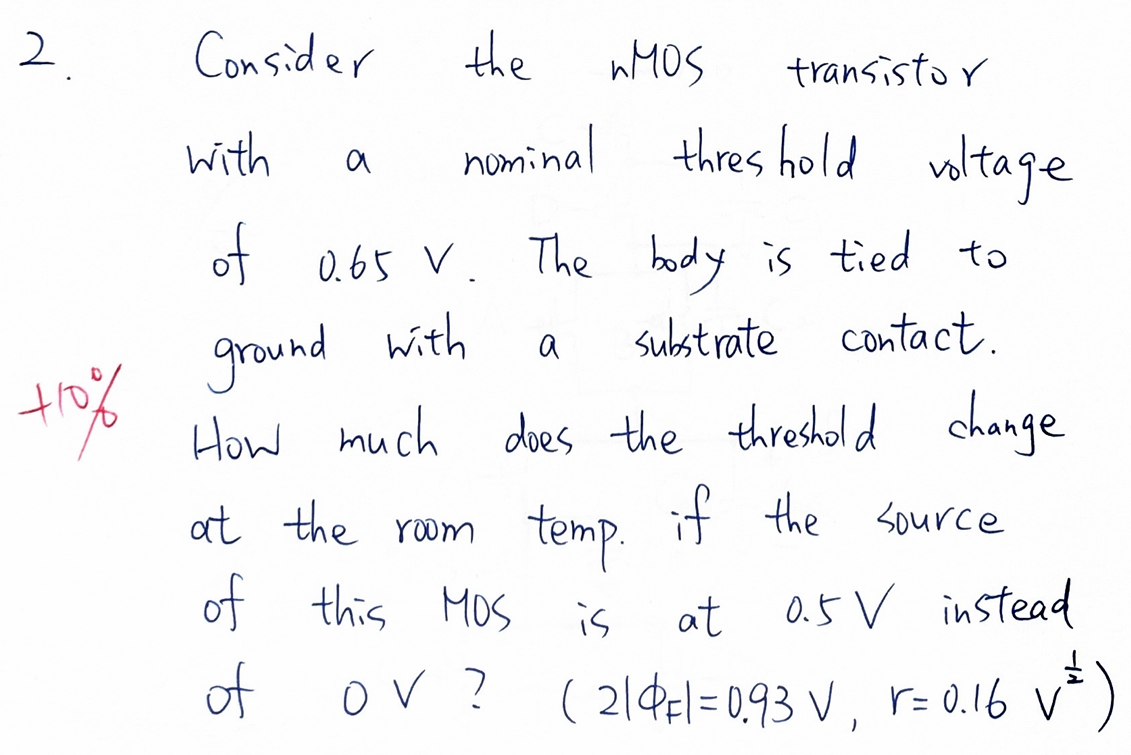 2. Consider the nMOS transistor
with a nominal threshold voltage
of 0.65 V. The body is tied to
ground with a substrate contact.
+10%
How much does the threshold change
at the room temp. if the source
of this MOS is at 0.5 V instead
of 0 V ? ( 2|ϕF|= 0.93 V, r= 0.16 V^½ )